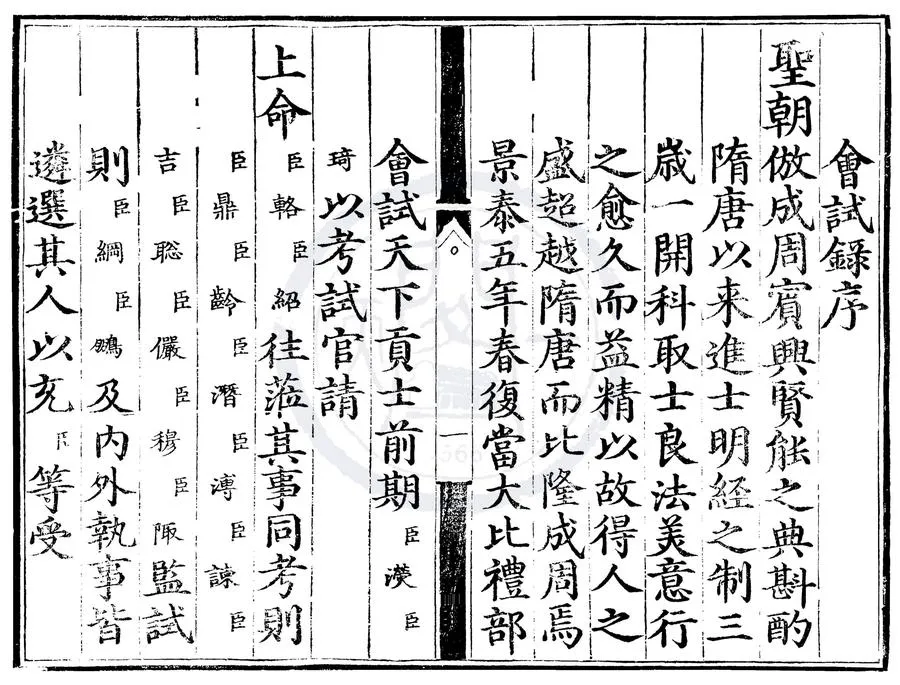 會試錄序
聖朝倣成周賓興賢能之典斟酌
隋唐以来進士明經之制三
歲一開科取士良法美意行
之愈久而益精以故得人之
盛超越隋唐而比隆成周焉
景泰五年春復當大比禮部
一
會試天下貢士前期臣濙臣
琦以考試官請
上命臣輅臣紹往蒞其事同考則
臣鼎臣齡臣潛臣溥臣諫臣
吉臣聡臣儼臣穆臣陬監試
則臣綱臣鵬及内外執事皆
遴選其人以充臣等受